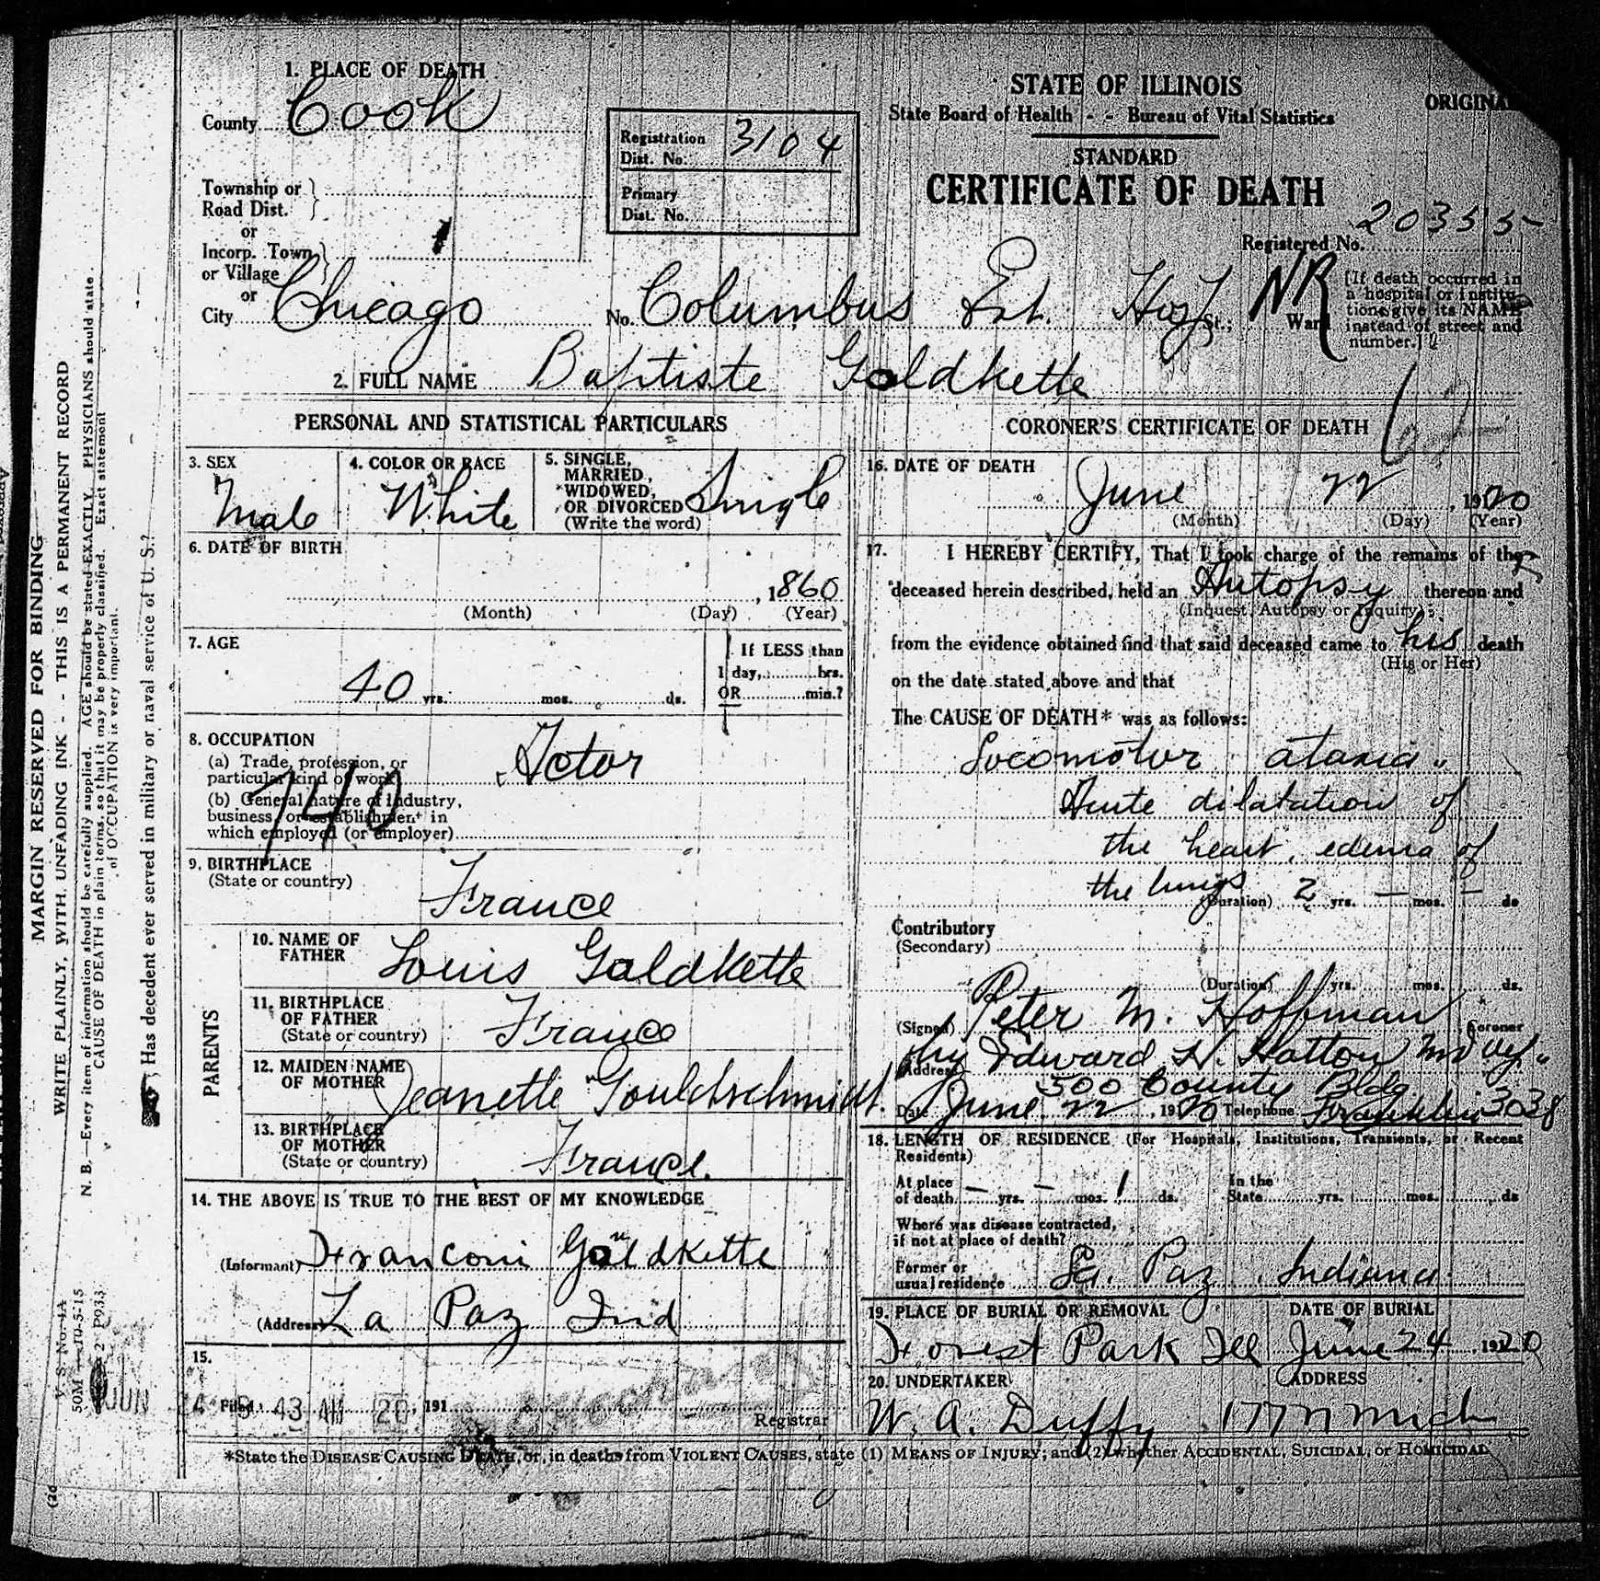 1. PLACE OF DEATH
County Cook
Registration Dist. No. 3104
Primary Dist. No.
Township or Road Dist.
or
Incorp. Town or Village
or
City Chicago No. Columbus Ext. Hosp St.; Ward
STATE OF ILLINOIS
State Board of Health - - Bureau of Vital Statistics
STANDARD
CERTIFICATE OF DEATH
ORIGINAL
Registered No. 20355
NR
[If death occurred in
a hospital or institu-
tion, give its NAME
instead of street and
number.]
2. FULL NAME Baptiste Goldkette
PERSONAL AND STATISTICAL PARTICULARS
3. SEX
Male
4. COLOR OR RACE
White
5. SINGLE,
MARRIED,
WIDOWED,
OR DIVORCED
(Write the word)
Single
6. DATE OF BIRTH
, 1860
(Month) (Day) (Year)
7. AGE
40 yrs. mos. ds.
If LESS than
1 day, hrs.
OR min.?
8. OCCUPATION
(a) Trade, profession, or
particular kind of work
Actor
(b) General nature of industry,
business, or establishment in
which employed (or employer)
740
9. BIRTHPLACE
(State or country)
France
PARENTS
10. NAME OF
FATHER
Louis Goldkette
11. BIRTHPLACE
OF FATHER
(State or country)
France
12. MAIDEN NAME
OF MOTHER
Jeanette Gouldschmidt.
13. BIRTHPLACE
OF MOTHER
(State or country)
France.
14. THE ABOVE IS TRUE TO THE BEST OF MY KNOWLEDGE
(Informant) Franconi Goldkette
(Address) La Paz Ind
15.
Filed 191
JUN 24 43 AM 20
Registrar
CORONER'S CERTIFICATE OF DEATH
16. DATE OF DEATH
June 22, 1920
(Month) (Day) (Year)
17. I HEREBY CERTIFY, That I took charge of the remains of the
deceased herein described, held an Autopsy thereon and
(Inquest, Autopsy or Inquiry)
from the evidence obtained find that said deceased came to his death
(His or Her)
on the date stated above and that
The CAUSE OF DEATH* was as follows:
Locomotor ataxia
Acute dilatation of
the heart, edema of
the lungs
(Duration) 2 yrs. — mos. — ds
Contributory
(Secondary)
(Duration) yrs. mos. ds.
(Signed) Peter M. Hoffman Coroner
by Edward H. Hatton MD
Address 500 County Bldg
Date June 22, 1920 Telephone Franklin 3038
18. LENGTH OF RESIDENCE (For Hospitals, Institutions, Transients, or Recent
Residents)
At place
of death — yrs. — mos. 1 ds.
In the
State yrs. mos. ds
Where was disease contracted,
if not at place of death?
Former or
usual residence La. Paz, Indiana.
19. PLACE OF BURIAL OR REMOVAL
Forest Park Ill
DATE OF BURIAL
June 24, 1920
20. UNDERTAKER
W. A. Duffy
ADDRESS
177 N Mich
*State the DISEASE CAUSING DEATH, or, in deaths from VIOLENT CAUSES, state (1) MEANS OF INJURY; and (2) whether ACCIDENTAL, SUICIDAL, or HOMICIDAL
MARGIN RESERVED FOR BINDING
WRITE PLAINLY, WITH UNFADING INK - - THIS IS A PERMANENT RECORD
N. B.—Every item of information should be carefully supplied. AGE should be stated EXACTLY. PHYSICIANS should state
CAUSE OF DEATH in plain terms, so that it may be properly classified. Exact statement
of OCCUPATION is very important.
Has decedent ever served in military or naval service of U. S.?
V. S. No. 4A
50M